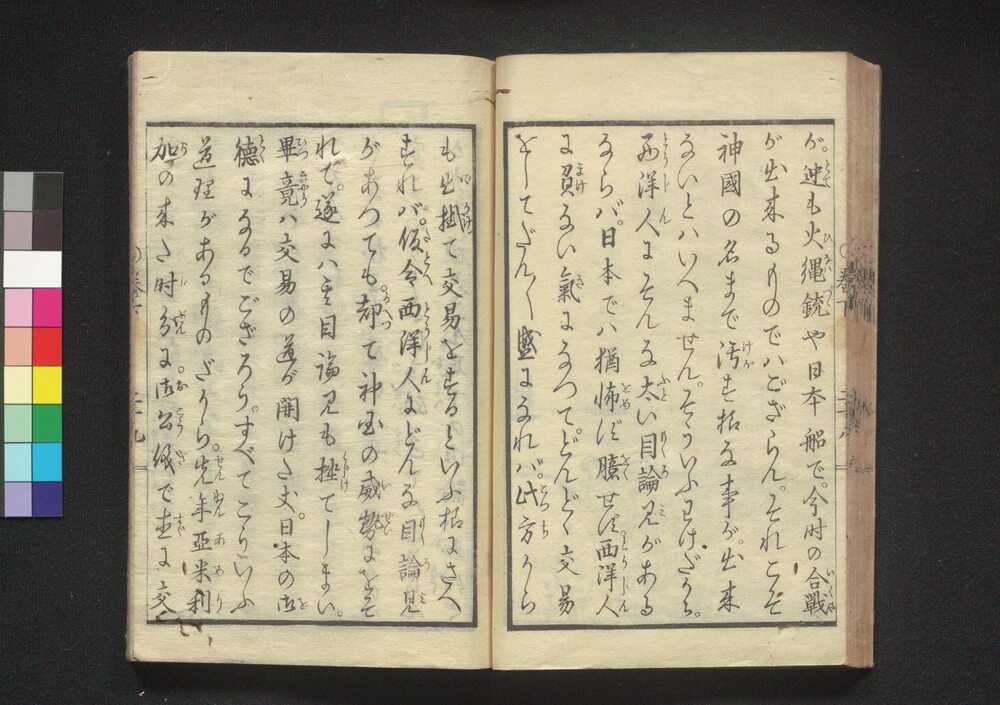 が。迚も火縄銃や日本船で。今时の合戦
が出来るものでハござらん。それこそ
神國の名まで汚す様な事が。出来
ないとハいへません。そういふわけだから。
西洋人にそんな太い目論見がある
ならバ。日本でハ猶怖ず臆せず西洋人
に負ない氣になつて。どんどく交易
をしてだん〳〵盛になれバ。此方から
も出掛て交易をするといふ様にさへ
すれバ。仮令西洋人にどんな目論見
があつても。却て神国の威勢にをそ
れて。遂にハ其目論見も挫てしまい。
畢竟ハ交易の道が開けた丈。日本の御
徳になるでござろう。すべてこういふ
道理があるものだから。先年亞米利
加の来た时分に。御公儀で直に交